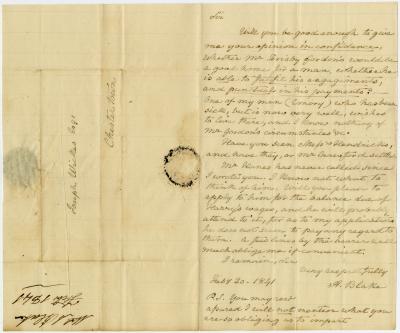 Sir
Will you be good enough to give
me your opinion in confidence,
whether Mr Gordon's would be
a good home for a man, whether he
is able to fulfil his engagements,
and punctual in his payments?
One of my men (Emory) who has been
sick, but is now very well, wishes
to live there, and I know nothing of
Mr Gordon's circumstances &c.
Have you seen Messrs Hendricks,
and have they, or Mr settled
Mr has never called since
I wrote you. I know not what to
think of him. Will you please to
apply to him for the balance due of
Henry's wages, and he will probably
attend to it, for as to my application
he does not seem to pay any regard to
them. A few lines by the bearer will
much oblige me if convenient.
I remain, Sir
very respectfully
Feby 20. 1841 Blake
P.S. You may rest
assured I will not mention what you
are so obliging as to impart
Joseph Wickes Esqr
Chestertown
Blake
Feb 1841